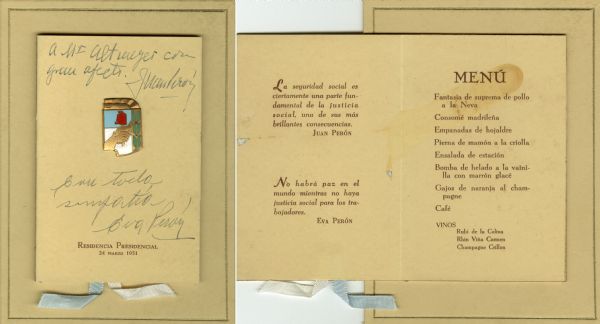 A Mr Altmeyer con
gran afecto.
Juan Perón
Con toda
simpatía
Eva Perón
Residencia Presidencial
24 marzo 1951
La seguridad social es
ciertamente una parte fun-
damental de la justicia
social, una de sus más
brillantes consecuencias.
Juan Perón
No habrá paz en el
mundo mientras no haya
justicia social para los tra-
bajadores.
Eva Perón
MENÚ
Fantasía de suprema de pollo
a la Neva
Consomé madrileña
Empanadas de hojaldre
Pierna de mamón a la criolla
Ensalada de estación
Bomba de helado a la vaini-
lla con marrón glacé
Gajos de naranja al cham-
pagne
Café
VINOS
Rubí de la Colina
Rhin Viña Carmen
Champagne Crillon